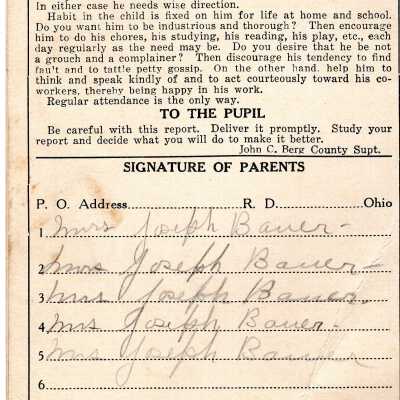 In either case he needs wise direction.
Habit in the child is fixed on him for life at home and school.
Do you want him to be industrious and thorough? Then encourage
him to do his chores, his studying, his reading, his play, etc., each
day regularly as the need may be. Do you desire that he be not
a grouch and a complainer? Then discourage his tendency to find
fault and to tattle petty gossip. On the other hand, help him to
think and speak kindly of and to act courteously toward his co-
workers, thereby being happy in his work.
Regular attendance is the only way.
TO THE PUPIL
Be careful with this report. Deliver it promptly. Study your
report and decide what you will do to make it better.
John C. Berg County Supt.
SIGNATURE OF PARENTS
P. O. Address............R. D............Ohio
1 Mrs Joseph Bauer-
2 Mrs Joseph Bauer-
3 Mrs Joseph Bauer.
4 Mrs Joseph Bauer-
5 Mrs Joseph Bauer
6